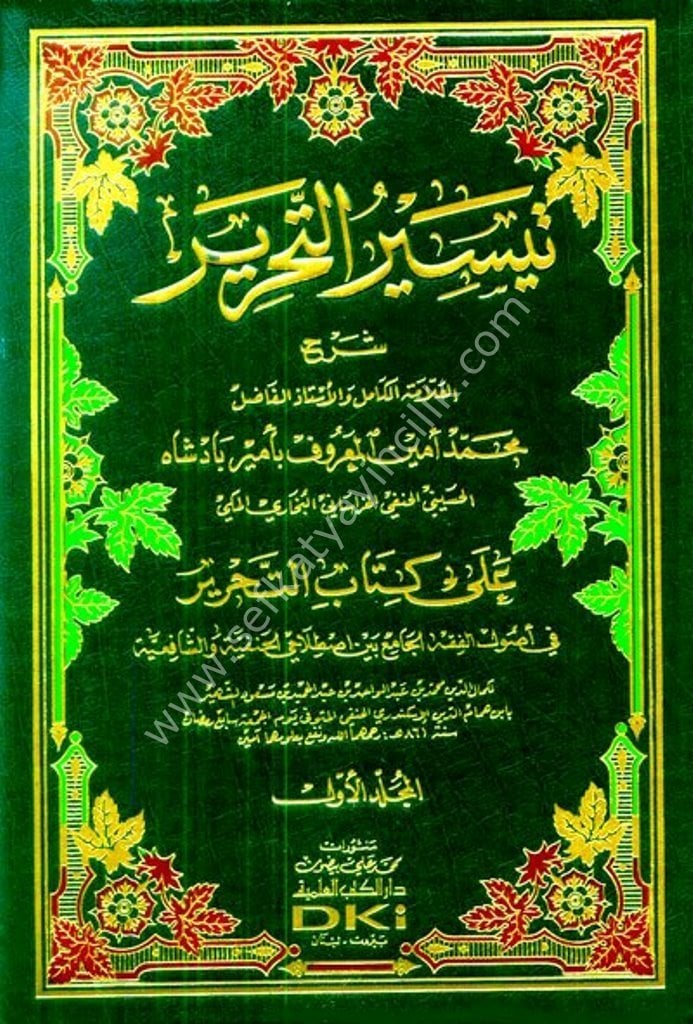 تيسير التحرير
شرح
العلامة الكامل والأستاذ الفاضل
محمد أمين المعروف بأمير بادشاه
الحسيني الحنفي الخراساني البخاري المكي
على كتاب التحرير
في أصول الفقه الجامع بين اصطلاحي الحنفية والشافعية
لكمال الدين محمد بن عبد الواحد بن عبد الحميد بن مسعود الشهير
بابن همام الدين الإسكندري الحنفي المتوفى يوم الجمعة سابع رمضان
سنة ٨٦١ هـ: رحمهما الله ونفع بعلومهما آمين
المجلد الأول
منشورات
محمد علي بيضون
دار الكتب العلمية
DKi
بيروت - لبنان
www.seriyatyayincilik.com